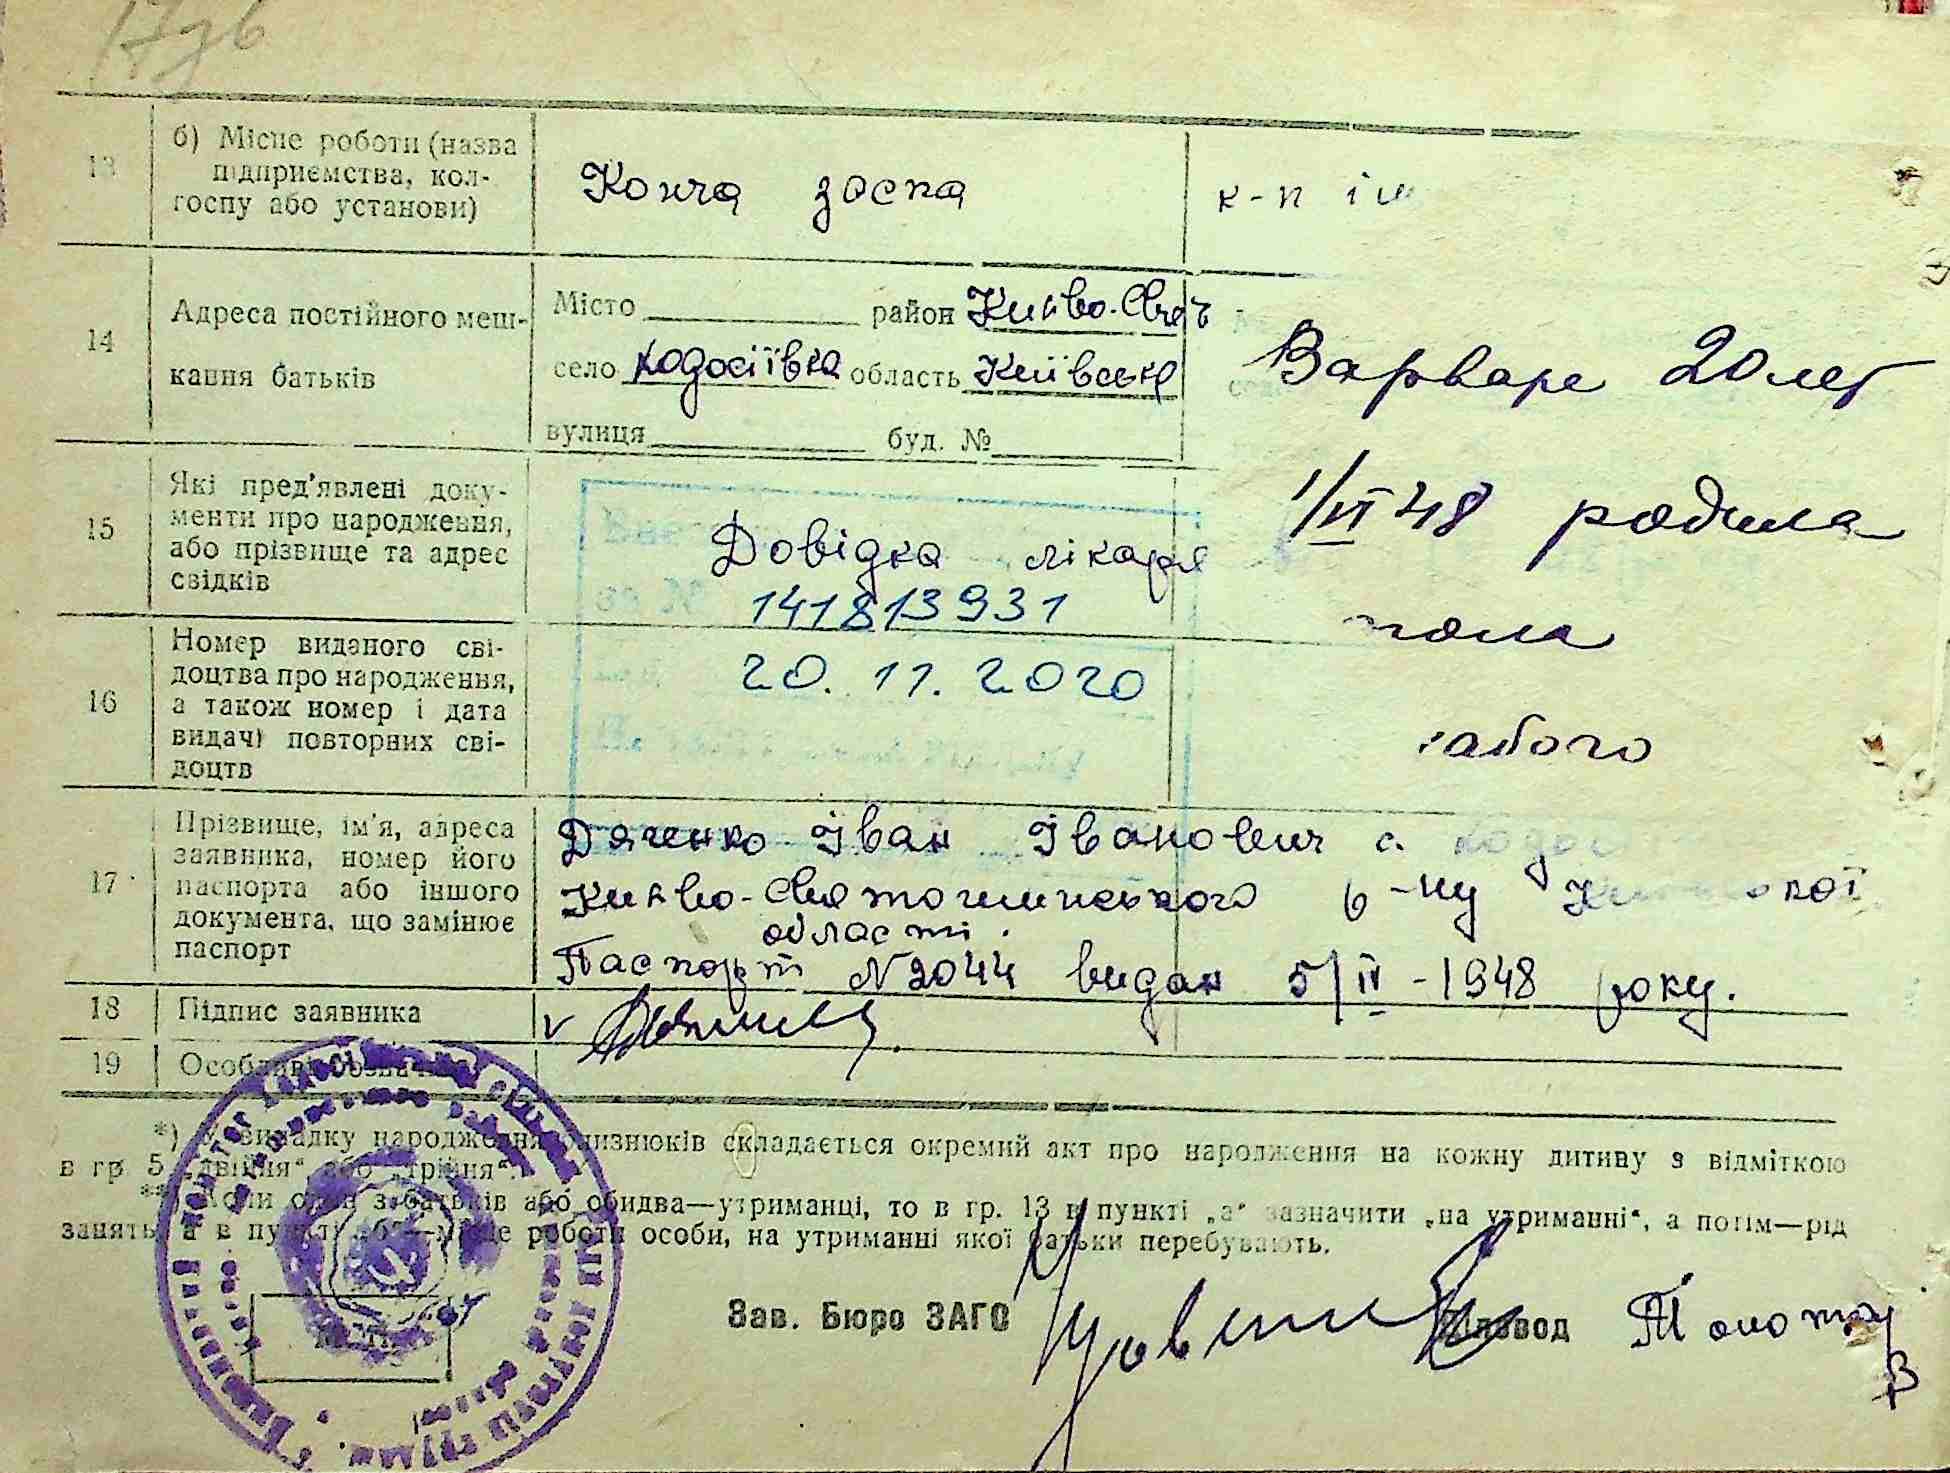 13
б) Місце роботи (назва
підприємства, кол-
госпу або установи)
Конча заспа
к-п ім
14
Адреса постійного меш-
кання батьків
Місто район Києво-Свят
село Ходосіївка область Київська
вулиця буд. №
Варваре 20 лет
1/VI 48 родила
15
Які пред'явлені доку-
менти про народження,
або прізвище та адрес
свідків
Довідка лікаря
за № 141813931
20. 11. 2020
16
Номер виданого сві-
доцтва про народження,
а також номер і дата
видачі повторних сві-
доцтв
17
Прізвище, ім'я, адреса
заявника, номер його
паспорта або іншого
документа, що замінює
паспорт
Дяченко Іван Іванович с.
Києво-Святошинського р-ну
області.
Паспорт №2044 видан 5/IV-1948 року.
18
Підпис заявника
v
19
*) У випадку народження близнюків складається окремий акт про народження на кожну дитину з відміткою
в гр. 5 „двійня“ або „трійня“.
**) Коли один з батьків або обидва—утриманці, то в гр. 13 в пункті „а“ зазначити „на утриманні“, а потім—рід
занять, а в пункті „б“—місце роботи особи, на утриманні якої батьки перебувають.
Зав. Бюро ЗАГС
Діловод